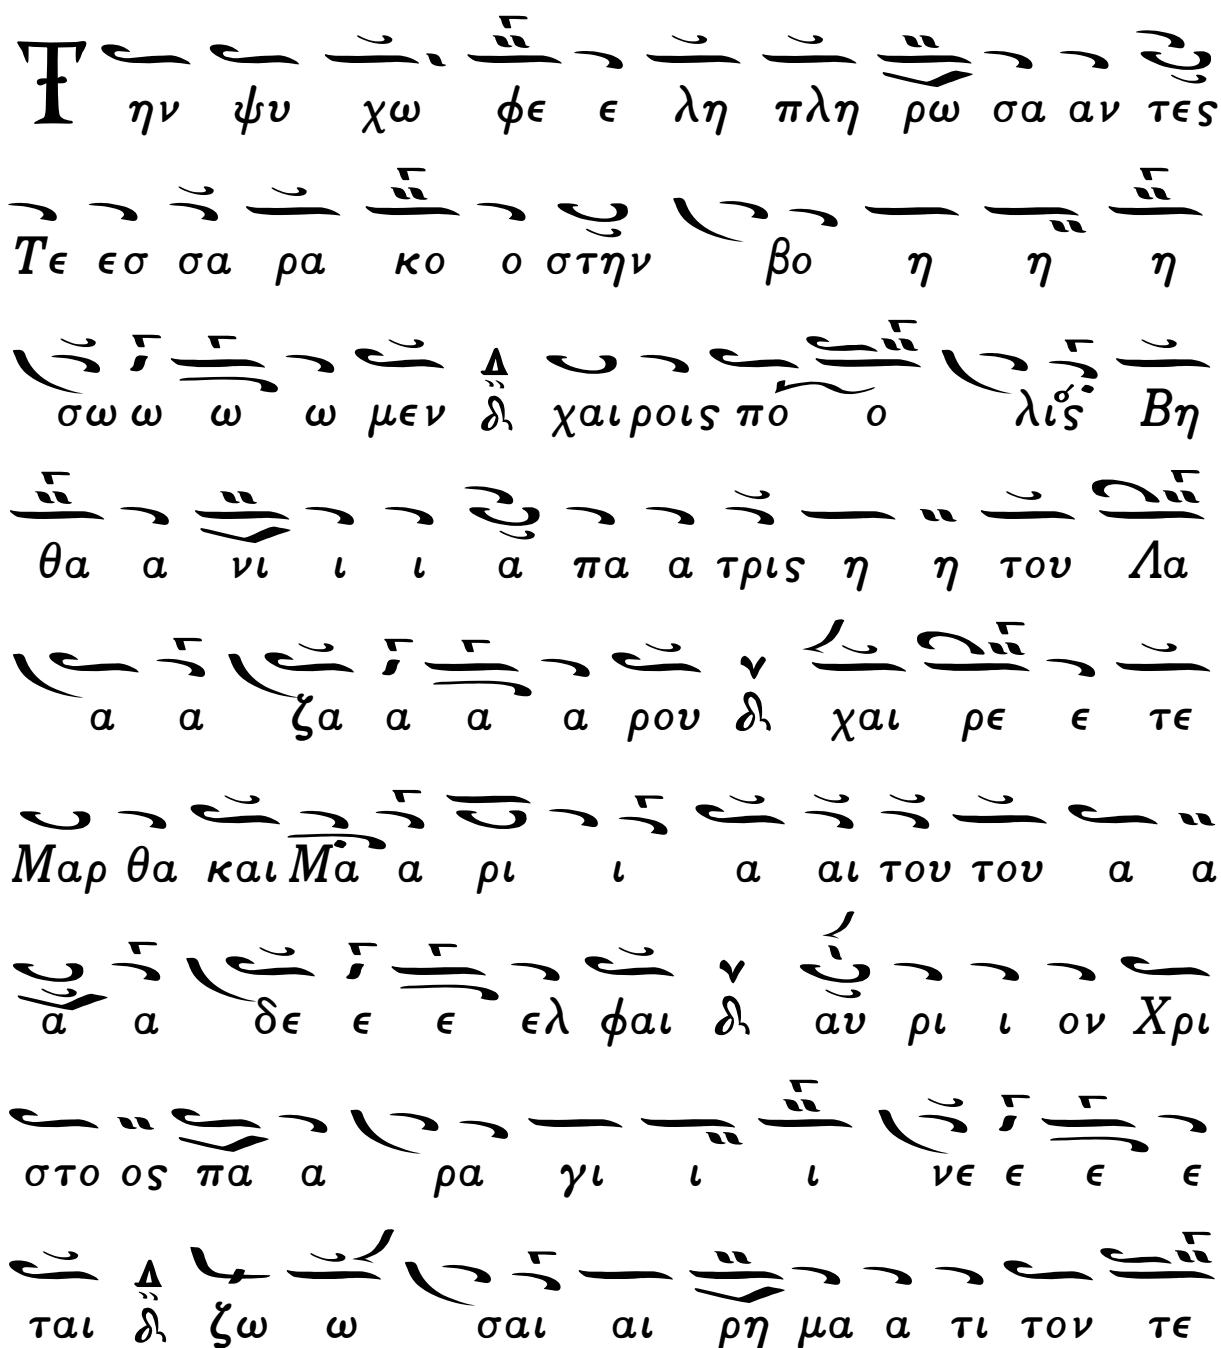 Την ψυ χω φε ε λη πλη ρω σα αν τες
Τε εσ σα ρα κο ο στην βο η η η
σω ω ω ω μεν Δ χαι ροις πο ο λις Βη
θα α νι ι ι α πα α τρις η η του Λα
α α ζα α α α ρου χαι ρε ε τε
Μαρ θα και Μα α ρι ι α αι του του α α
α α δε ε ε ελ φαι αυ ρι ι ον Χρι
στο ος πα α ρα γι ι ι νε ε ε ε
ται Δ ζω ω σαι αι ρη μα α τι τον τε